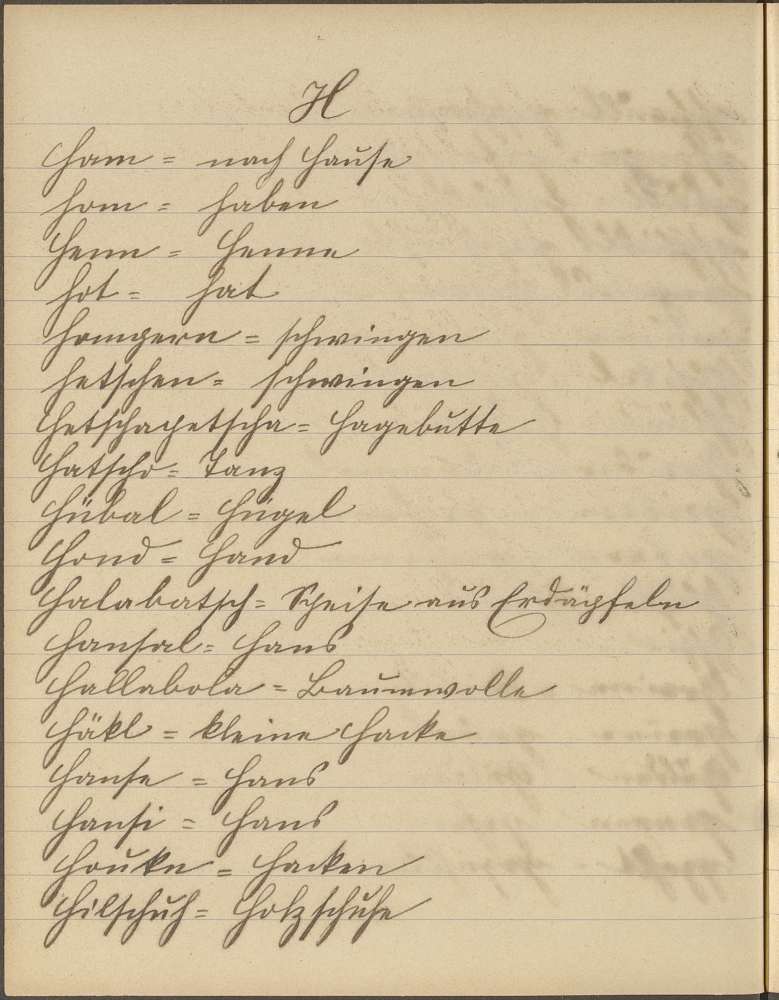 H
Ham = nach Hause
hom = haben
Henn = Henne
hot = hat
hompern = schwingen
hetschen = schwingen
Hetschapetscha = Hagebutte
Hatscho = Tanz
Hübal = Hügel
Hond = Hand
Halabatsch = Speise aus Erdäpfeln
Hansal = Hans
Hallabola = Baumwolle
Häkl = kleine Hacke
Hanse = Hans
Hansi = Hans
Houkn = Hacken
Hilschuh = Holzschuhe